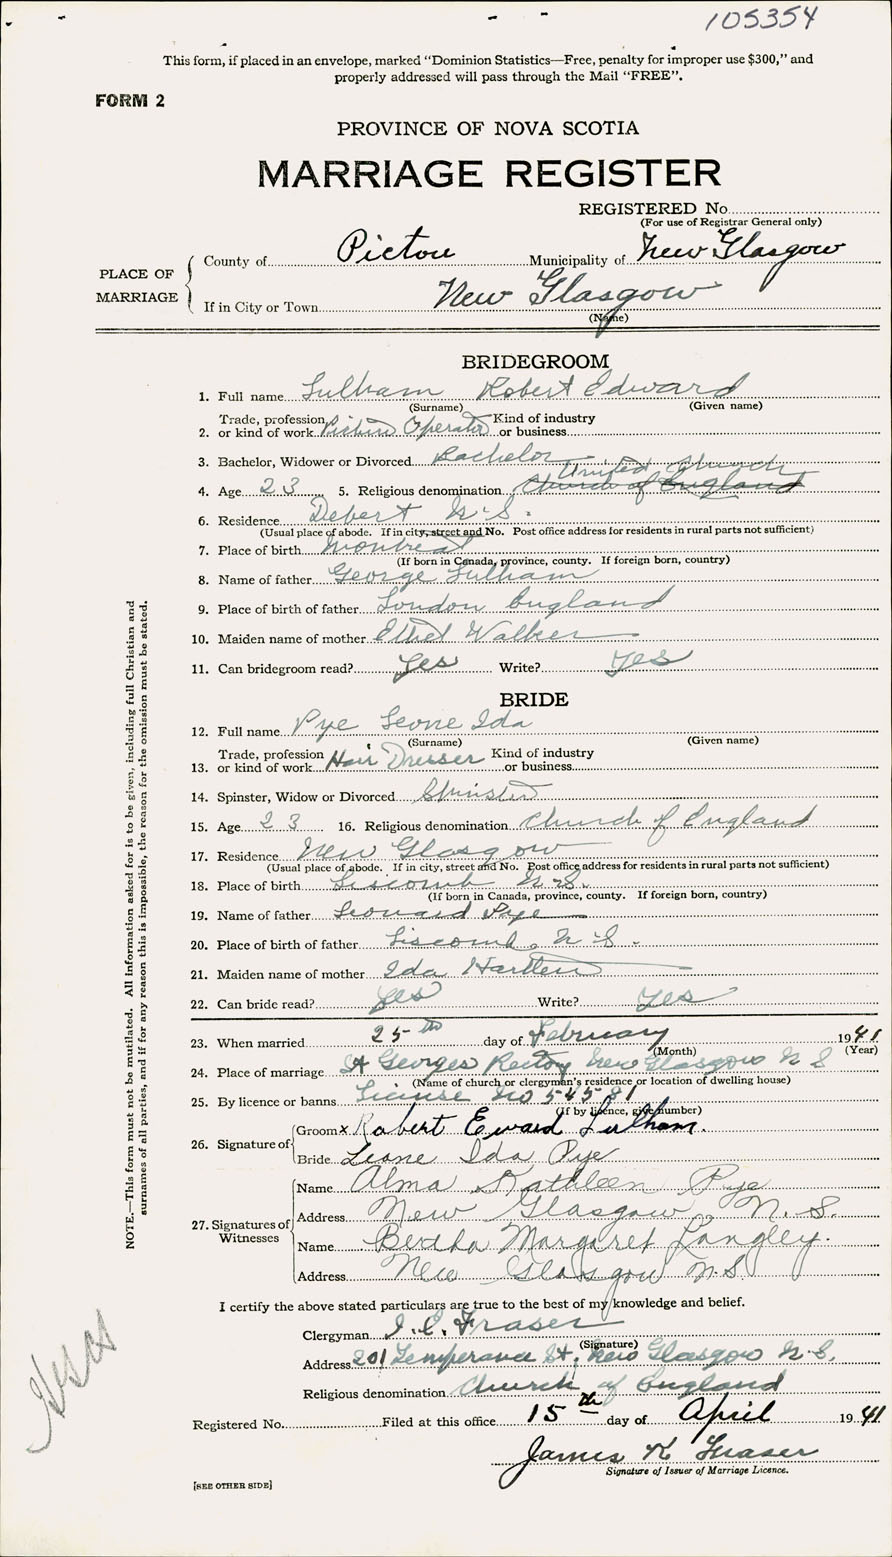 105354
This form, if placed in an envelope, marked "Dominion Statistics—Free, penalty for improper use $300," and
properly addressed will pass through the Mail "FREE".
FORM 2
PROVINCE OF NOVA SCOTIA
MARRIAGE REGISTER
REGISTERED No.
(For use of Registrar General only)
PLACE OF MARRIAGE
County of Pictou Municipality of New Glasgow
If in City or Town New Glasgow
(Name)
BRIDEGROOM
1. Full name Lulham Robert Edward
(Surname) (Given name)
Trade, profession Kind of industry
2. or kind of work Operator or business
3. Bachelor, Widower or Divorced Bachelor
United Church
4. Age 23 5. Religious denomination Church of England
6. Residence Debert N.S.
(Usual place of abode. If in city, street and No. Post office address for residents in rural parts not sufficient)
7. Place of birth Montreal
(If born in Canada, province, county. If foreign born, country)
8. Name of father George Lulham
9. Place of birth of father London England
10. Maiden name of mother Ethel Walker
11. Can bridegroom read? Yes Write? Yes
BRIDE
12. Full name Pye Leone Ida
(Surname) (Given name)
Trade, profession Kind of industry
13. or kind of work Hair Dresser or business
14. Spinster, Widow or Divorced Spinster
15. Age 23 16. Religious denomination Church of England
17. Residence New Glasgow
(Usual place of abode. If in city, street and No. Post office address for residents in rural parts not sufficient)
18. Place of birth Liscomb N.S.
(If born in Canada, province, county. If foreign born, country)
19. Name of father Leonard Pye
20. Place of birth of father Liscomb, N.S.
21. Maiden name of mother Ida Hartlen
22. Can bride read? Yes Write? Yes
23. When married 25th day of February 1941
(Month) (Year)
24. Place of marriage St Georges Rectory New Glasgow N S
(Name of church or clergyman's residence or location of dwelling house)
25. By licence or banns License No 54581
(If by licence, give number)
26. Signature of
Groom x Robert Eward Lulham.
Bride Leone Ida Pye
27. Signatures of Witnesses
Name Alma Kathleen Pye
Address New Glasgow, N.S.
Name Bertha Margaret Langley.
Address New Glasgow N.S.
I certify the above stated particulars are true to the best of my knowledge and belief.
Clergyman Fraser
(Signature)
Address 201 Temperance St, New Glasgow N.S.
Religious denomination Church of England
Registered No. Filed at this office 15th day of April 1941
James K Fraser
Signature of Issuer of Marriage Licence.
[SEE OTHER SIDE]
NOTE.—This form must not be mutilated. All Information asked for is to be given, including full Christian and
surnames of all parties, and if for any reason this is impossible, the reason for the omission must be stated.